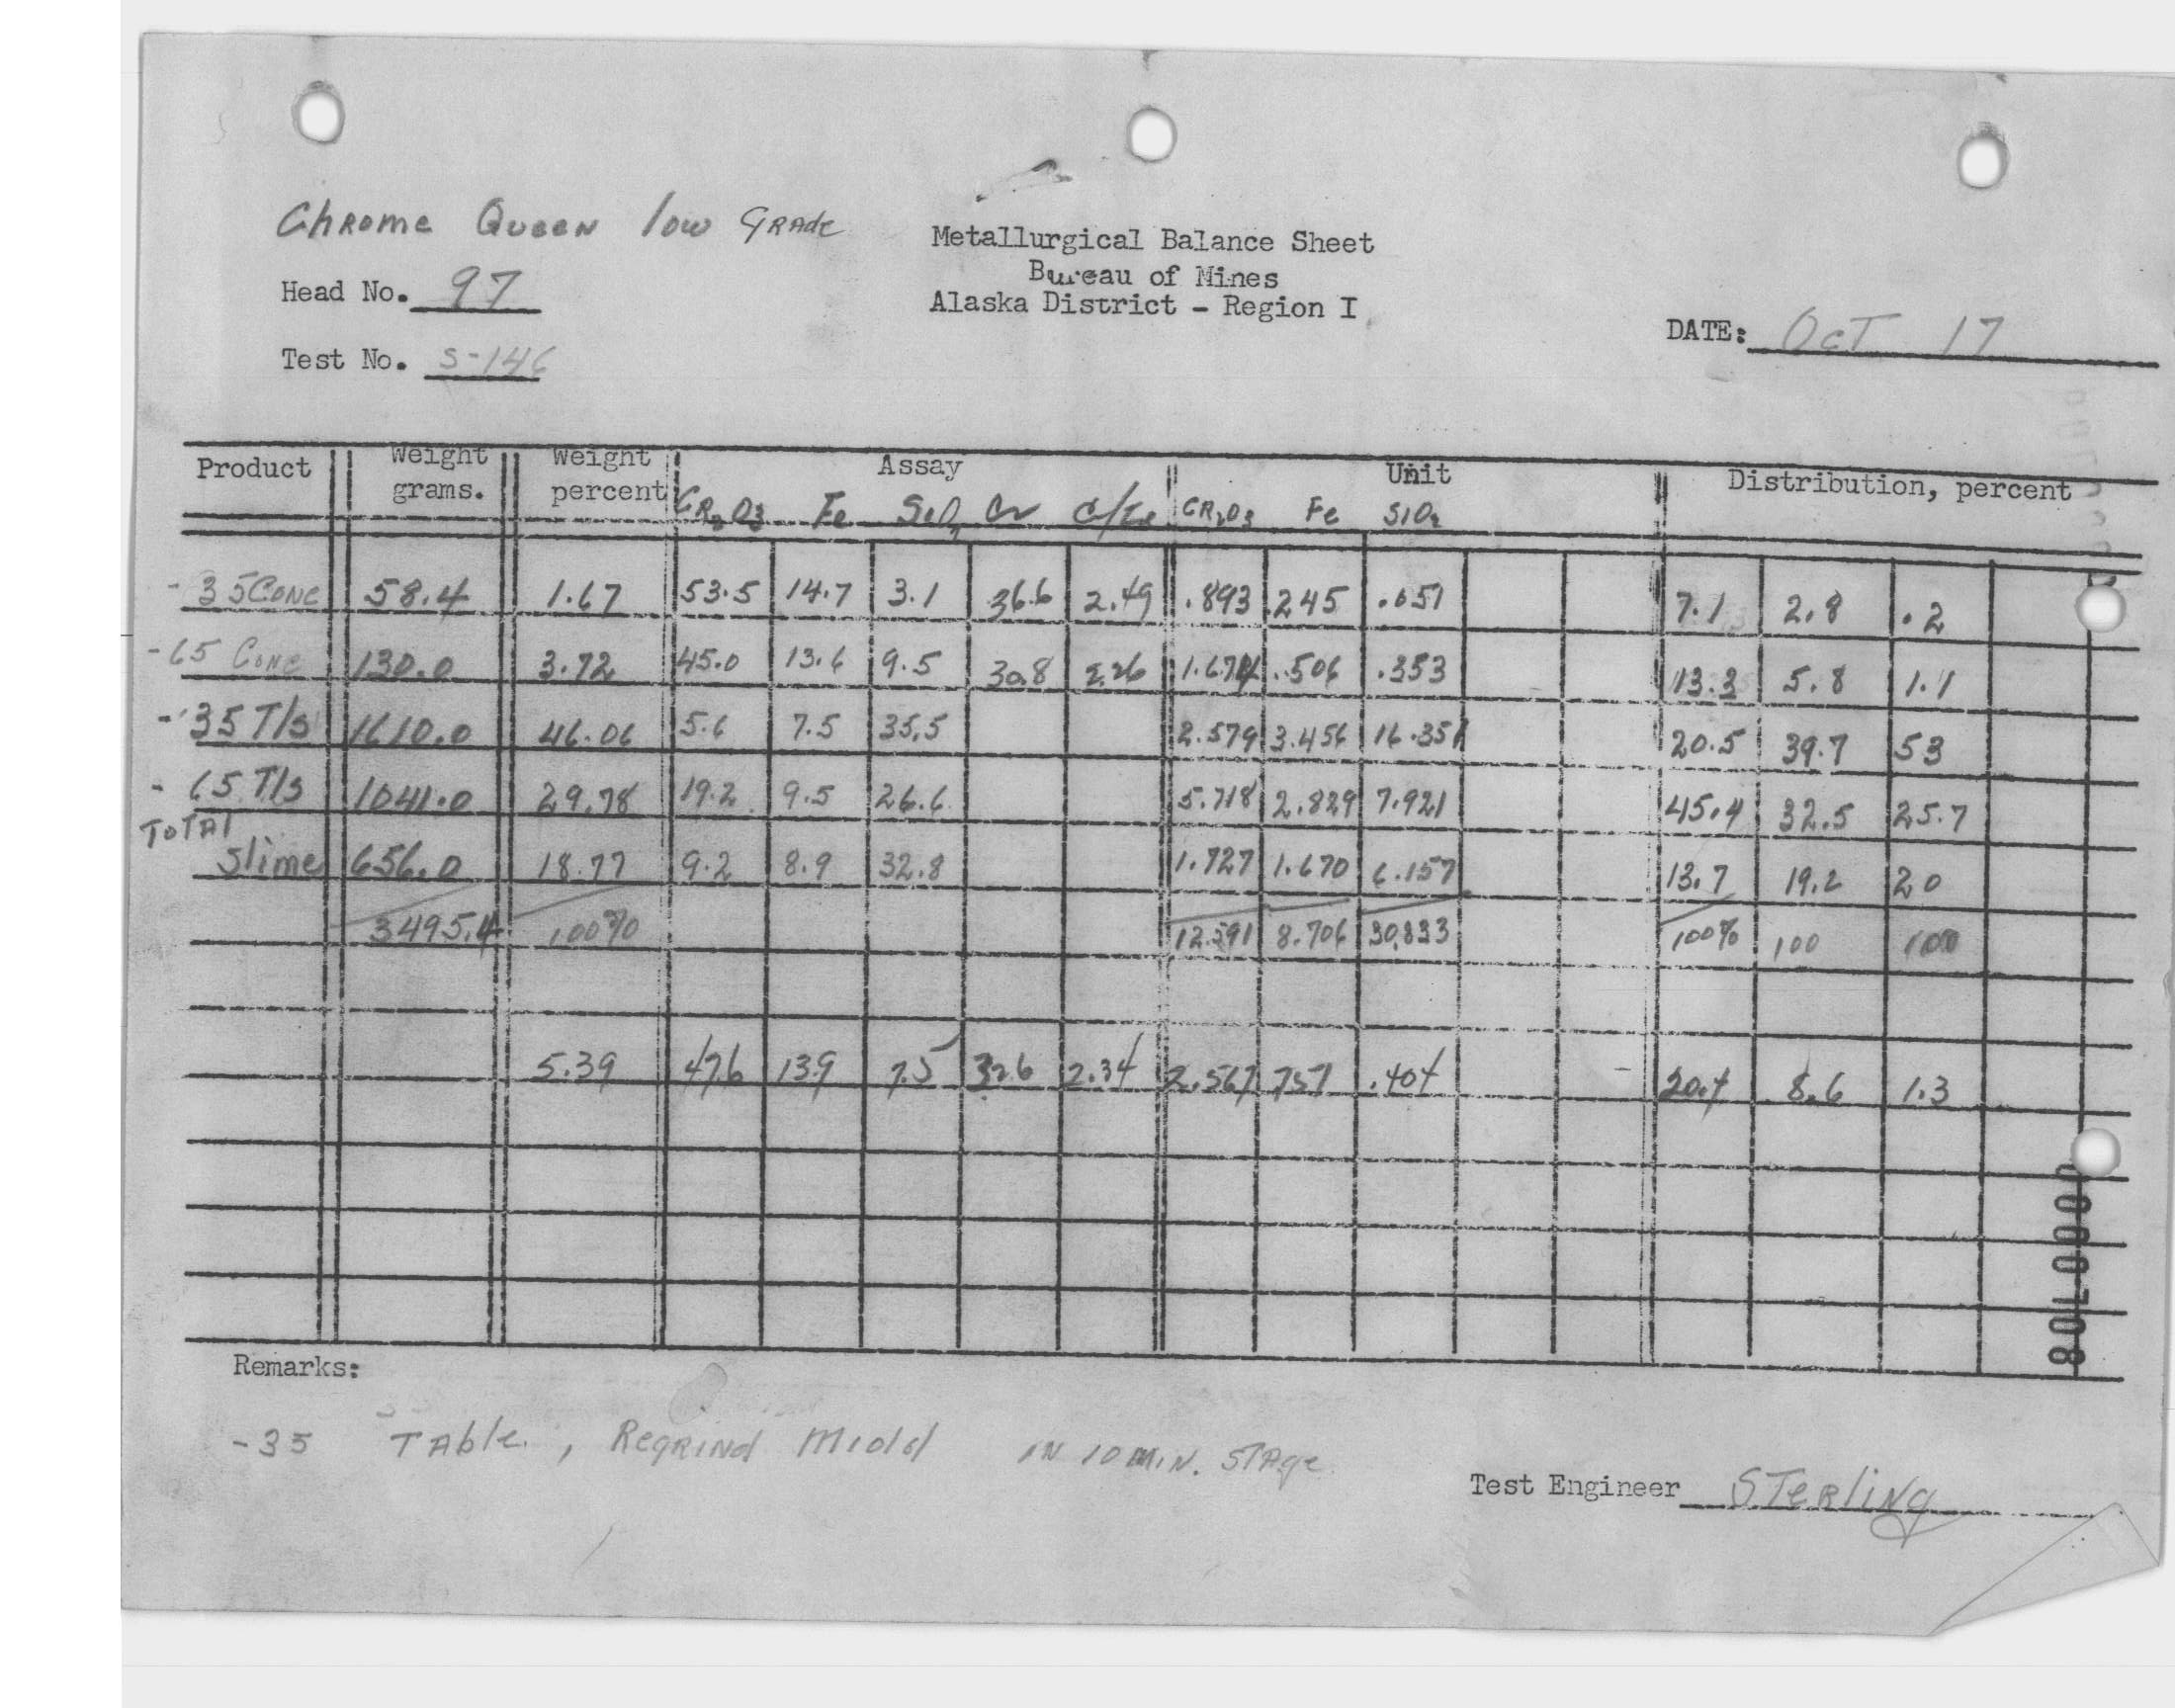 Chrome Queen low Grade
Metallurgical Balance Sheet
Bureau of Mines
Alaska District - Region I
Head No. 97
Test No. S-146
DATE: Oct 17
Product Weight grams. Weight percent Assay Unit Distribution, percent
Cr2O3 Fe SiO2 Cr Cr/Fe Cr2O3 Fe SiO2
-35 Conc 58.4 1.67 53.5 14.7 3.1 36.6 2.49 .893 .245 .051 7.1 2.8 .2
-65 Conc 130.0 3.72 45.0 13.6 9.5 30.8 2.26 1.674 .506 .353 13.3 5.8 1.1
-35 T/s 1610.0 46.06 5.6 7.5 35.5 2.579 3.456 16.351 20.5 39.7 53
-65 T/s 1041.0 29.78 19.2 9.5 26.6 5.718 2.829 7.921 45.4 32.5 25.7
Total
Slime 656.0 18.77 9.2 8.9 32.8 1.727 1.670 6.157 13.7 19.2 20
3495.4 100% 12.591 8.706 30.833 100% 100 100
5.39 47.6 13.9 7.5 32.6 2.34 2.567 757 .404 20.4 8.6 1.3
Remarks:
-35 Table, Regrind Midd in 10 min. Stage
Test Engineer Sterling
0000708